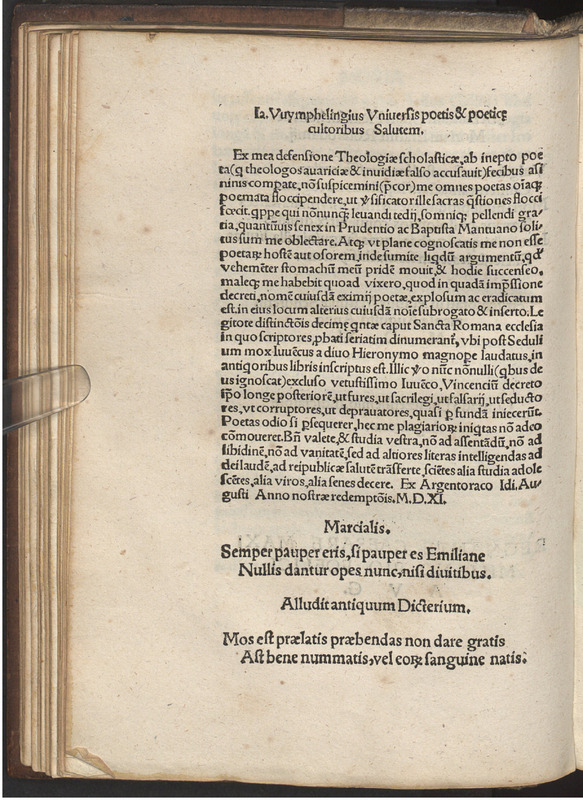 Ia. Vuymphelingius Vniuersis poetis & poeticę
cultoribus Salutem.
Ex mea defensione Theologiæ scholasticæ, ab inepto poe
ta (q theologos auariciæ & inuidiæ falso accusauit) fecibus asi
ninis comparate, nō suspicemini (p̄cor) me omnes poetas oīaqꝫ
poemata floccipendere, ut v̓sificator ille sacras q̄stiones flocci
fœcit. qppe qui nōnunqꝫ leuandi tedij, somniqꝫ pellendi gra-
tia, quantūuis senex in Prudentio ac Baptista Mantuano soli-
tus sum me oblectare. Atqꝫ vt plane cognoscatis me non esse
poetaꝝ hostē aut osorem, inde sumite liqdū argumentū, qđ
vehemēter stomachū meū pridē mouit, & hodie succenseo,
maleqꝫ me habebit quoad vixero, quod in quadā imp̄ssione
decreti, nomē cuiusdā eximij poetæ, explosum ac eradicatum
est. in eius locum alterius cuiusdā noīe subrogato & inserto. Le
gitote distinctōis decimę qntæ caput Sancta Romana ecclesia
in quo scriptores, pbati seriatim dinumerant᷑, vbi post Seduli
um mox Iuuēcus a diuo Hieronymo magnope laudatus, in
antiqoribus libris inscriptus est. Illic v̓o nūc nōnulli (qbus de
us ignoscat) excluso vetustissimo Iuuēco, Vincenciū decreto
ip̄o longe posteriorē, ut fures, ut sacrilegi, ut falsarij, ut seducto
res, vt corruptores, ut deprauatores, quasi ꝑ fundā iniecerūt.
Poetas odio si ꝑsequerer, hec me plagiarioꝝ iniqtas nō adeo
cōmoueret. Bn̄ valete, & studia vestra, nō ad assentādū, nō ad
libidinē, nō ad vanitatē, sed ad altiores literas intelligendas ad
dei laudē, ad reipublicæ salutē trāsferte, sciētes alia studia adole
scētes, alia viros, alia senes decere. Ex Argentoraco Idi. Au-
gusti Anno nostræ redemptōis. M.D.XI.
Marcialis.
Semper pauper eris, si pauper es Emiliane
Nullis dantur opes nunc, nisi diuitibus.
Alludit antiquum Dicterium.
Mos est prælatis præbendas non dare gratis
Ast bene nummatis, vel eoꝝ sanguine natis.